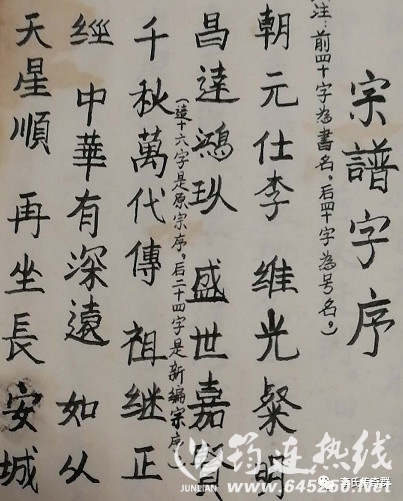 宗譜字序
注：前四十字為書名，后四十字為号名。）
朝元仕李 維光粲
昌達鴻玖 盛世嘉
（這十六字是原宗序，后二十四字是新編宗序）
千秋萬代傳 祖继正
經 中華有深遠 如从
天星順 再坐長安城
筠连热线
JUNLIAN